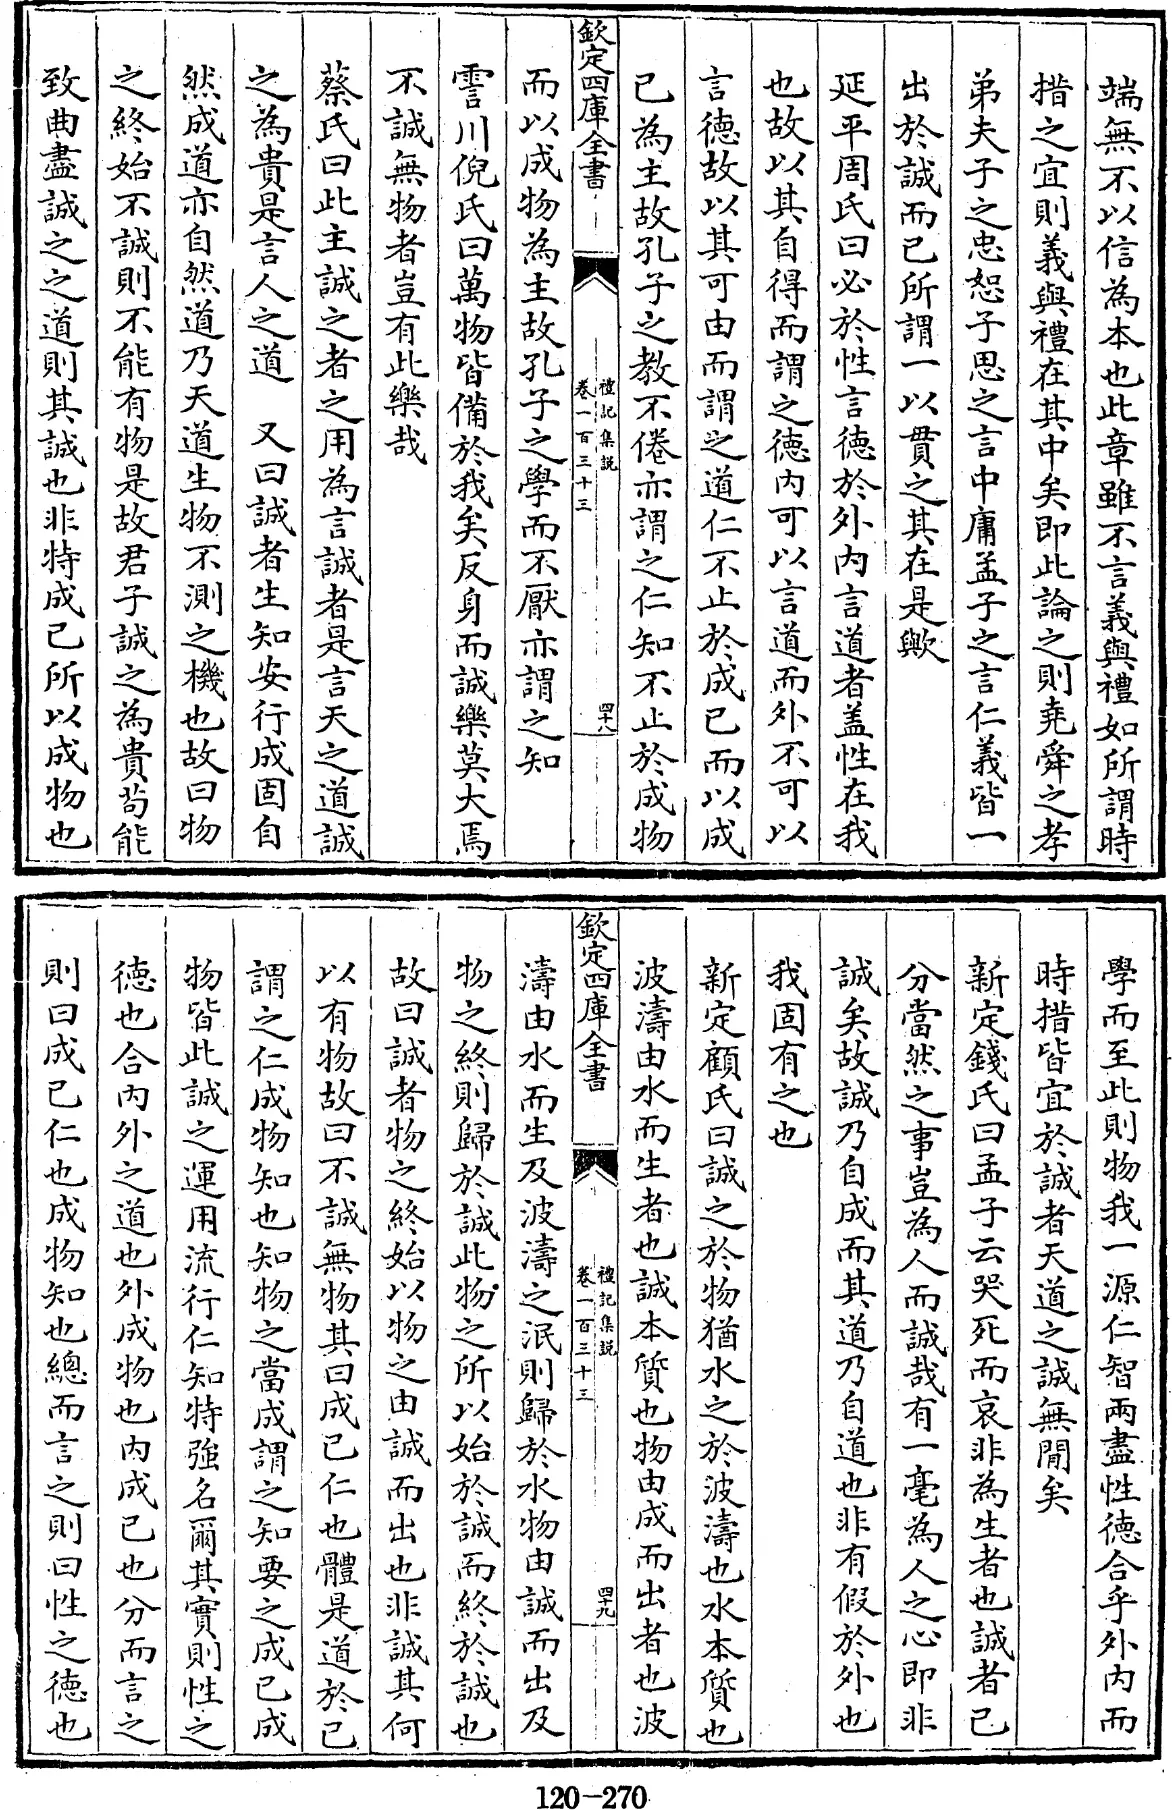 端無不以信為本也此章雖不言義與禮如所謂時
措之宜則義與禮在其中矣即此論之則堯舜之孝
弟夫子之忠恕子思之言中庸孟子之言仁義皆一
出於誠而已所謂一以貫之其在是歟
延平周氏曰必於性言德於外内言道者盖性在我
也故以其自得而謂之德内可以言道而外不可以
言德故以其可由而謂之道仁不止於成已而以成
已為主故孔子之教不倦亦謂之仁知不止於成物
欽定四庫全書
禮記集説
卷一百三十三
四十八
而以成物為主故孔子之學而不厭亦謂之知
霅川倪氏曰萬物皆備於我矣反身而誠樂莫大焉
不誠無物者豈有此樂哉
蔡氏曰此主誠之者之用為言誠者是言天之道誠
之為貴是言人之道 又曰誠者生知安行成固自
然成道亦自然道乃天道生物不測之機也故曰物
之終始不誠則不能有物是故君子誠之為貴苟能
致曲盡誠之之道則其誠也非特成已所以成物也
學而至此則物我一源仁智兩盡性德合乎外内而
時措皆宜於誠者天道之誠無閒矣
新定錢氏曰孟子云哭死而哀非為生者也誠者已
分當然之事豈為人而誠哉有一毫為人之心即非
誠矣故誠乃自成而其道乃自道也非有假於外也
我固有之也
新定顧氏曰誠之於物猶水之於波濤也水本質也
波濤由水而生者也誠本質也物由成而出者也波
欽定四庫全書
禮記集説
卷一百三十三
四十九
濤由水而生及波濤之泯則歸於水物由誠而出及
物之終則歸於誠此物之所以始於誠而終於誠也
故曰誠者物之終始以物之由誠而出也非誠其何
以有物故曰不誠無物其曰成已仁也體是道於已
謂之仁成物知也知物之當成謂之知要之成已成
物皆此誠之運用流行仁知特強名爾其實則性之
德也合内外之道也外成物也内成已也分而言之
則曰成已仁也成物知也總而言之則曰性之德也
120-270